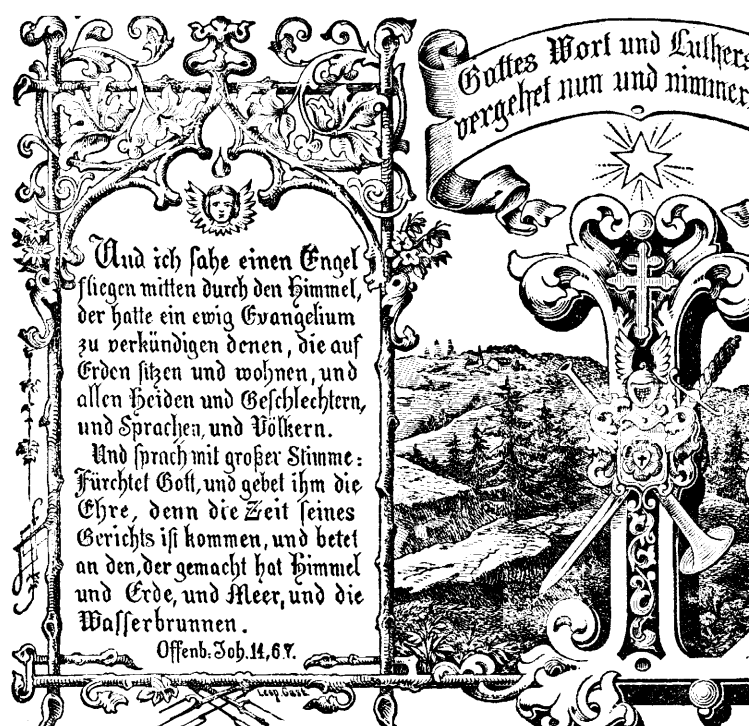 Gottes Wort und Luthers
vergehet nun und nimmer
Und ich sahe einen Engel
fliegen mitten durch den Himmel,
der hatte ein ewig Evangelium
zu verkündigen denen, die auf
Erden sitzen und wohnen, und
allen Heiden und Geschlechtern,
und Sprachen, und Völkern.
Und sprach mit großer Stimme:
Fürchtet Gott, und gebet ihm die
Ehre, denn die Zeit seines
Gerichts ist kommen, und betet
an den, der gemacht hat Himmel
und Erde, und Meer, und die
Wasserbrunnen.
Offenb. Joh. 14, 6 7.
Leop. Gast